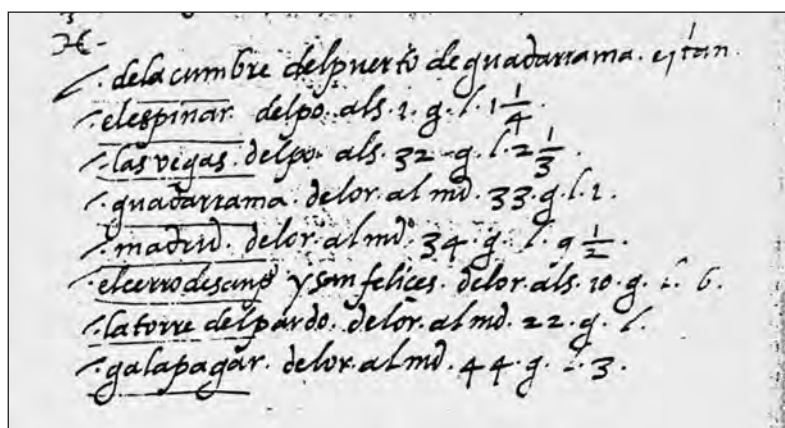 de la cumbre del puerto de guadarrama. estan
.el espinar. del po. al s. 1. g. l. 1 1/4.
.las vegas. del po. al s. 32. g. l. 2 1/3.
.guadarrama. del or. al md. 33. g. l. 1.
.madrid. del or. al md. 34. g. l. 9 1/2.
.el cerro de y san felices. del or. al s. 10. g. l. 6.
.la torre del pardo. del or. al md. 22. g. l.
.galapagar. del or. al md. 44. g. l. 3.